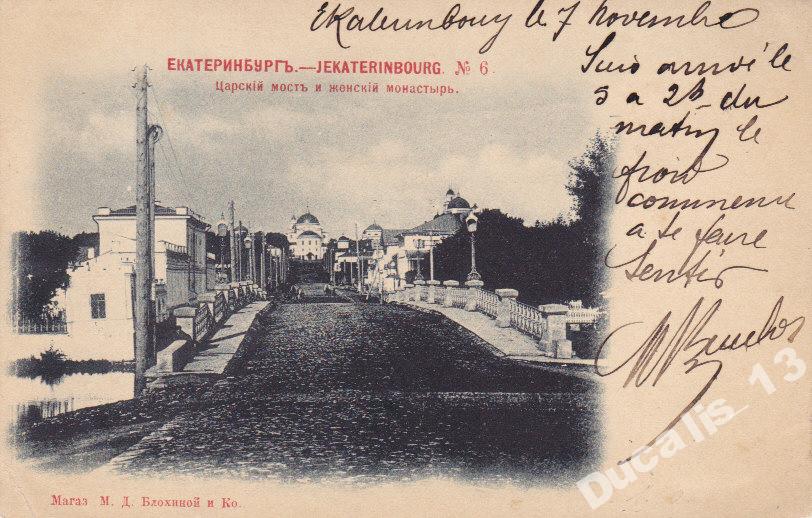 Ekaterinbourg le 7 Novembre
ЕКАТЕРИНБУРГЪ.—JEKATERINBOURG. № 6.
Царскій мостъ и женскій монастырь.
Suis arrivé le
5 a 2h du
matin le
froid
commence
a se faire
sentir
Магаз М. Д. Блохиной и Ко.
Ducalis_13